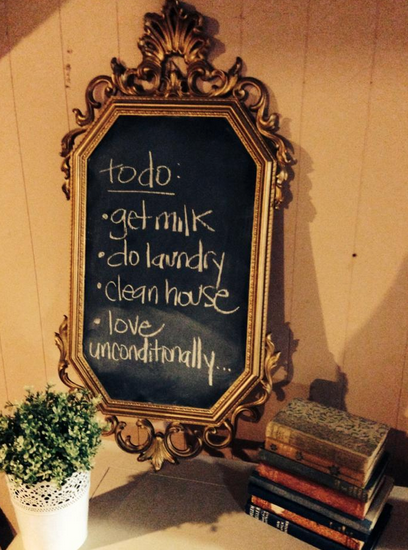 todo:
• get milk
• do laundry
• clean house
• love
unconditionally...